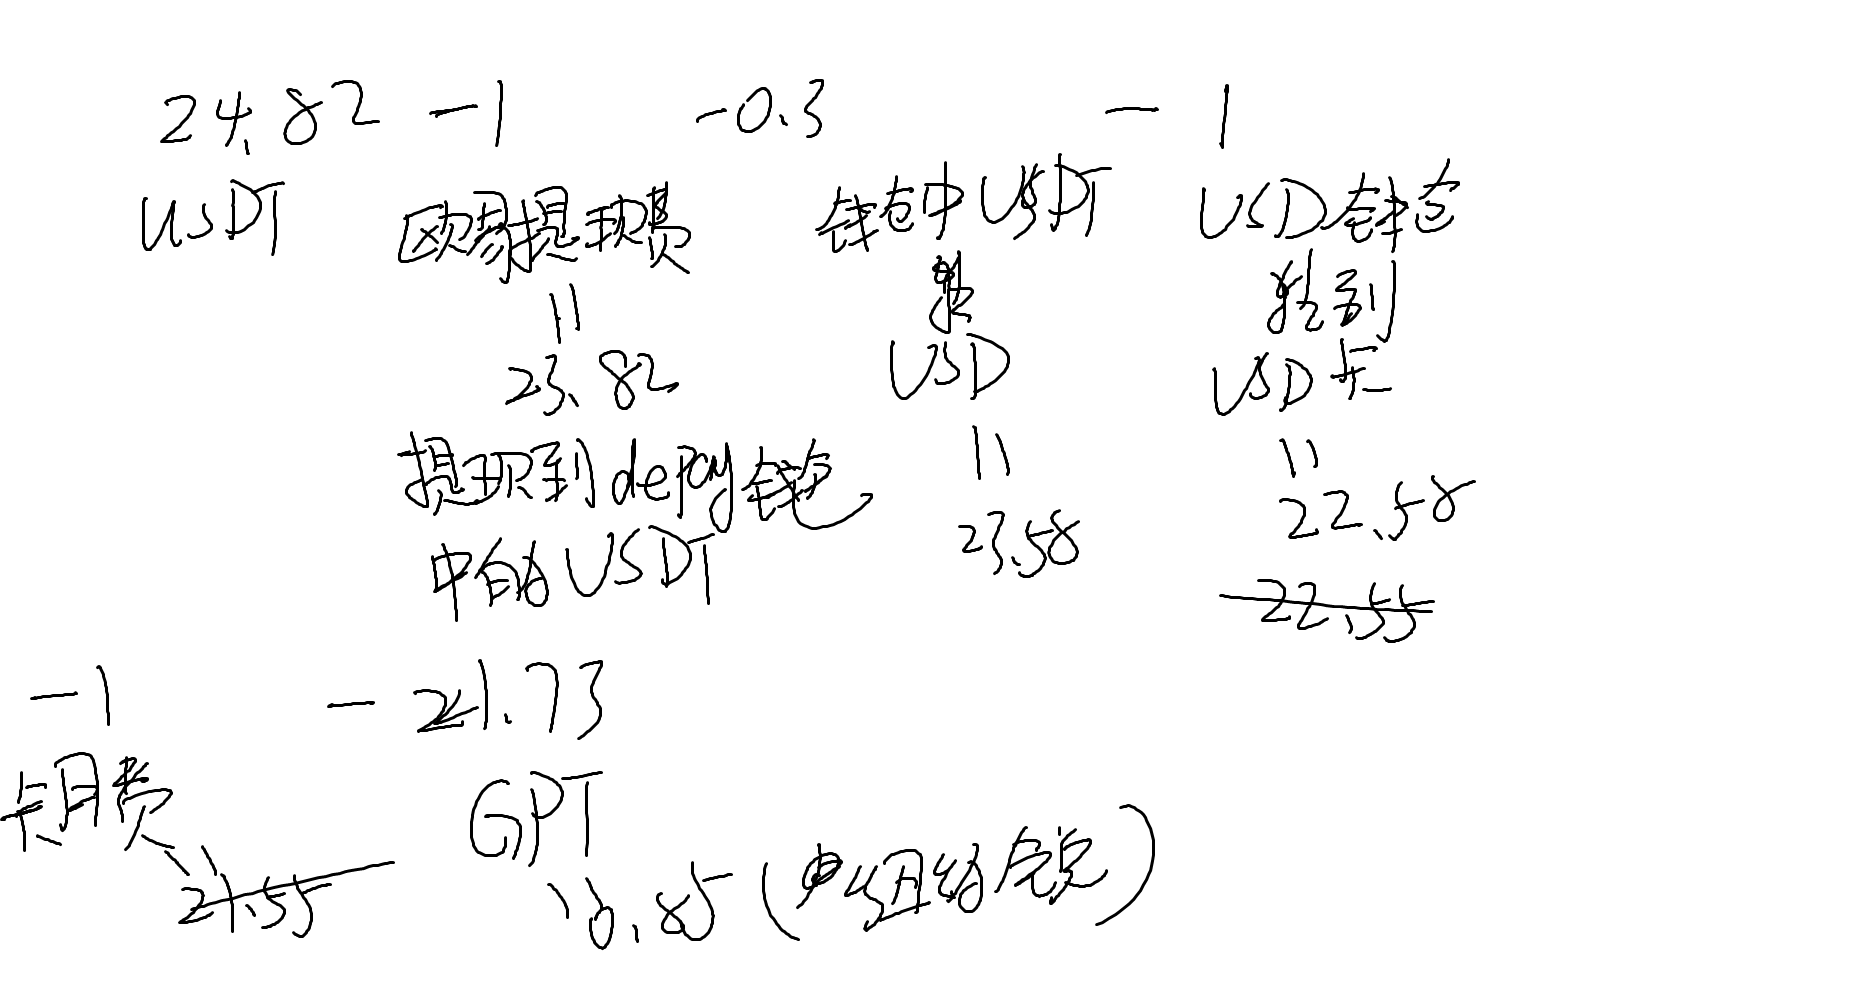 24.82 -1 -0.3 - 1
USDT 欧易提现费 钱包中USDT USD钱包
转 转到
= USD USD卡
23.82 = =
提现到depay钱包 23.58 22.58
中的USDT 22.55
-1 - 21.73
卡月费 GPT
= 21.55 = 0.85 (纽约税)